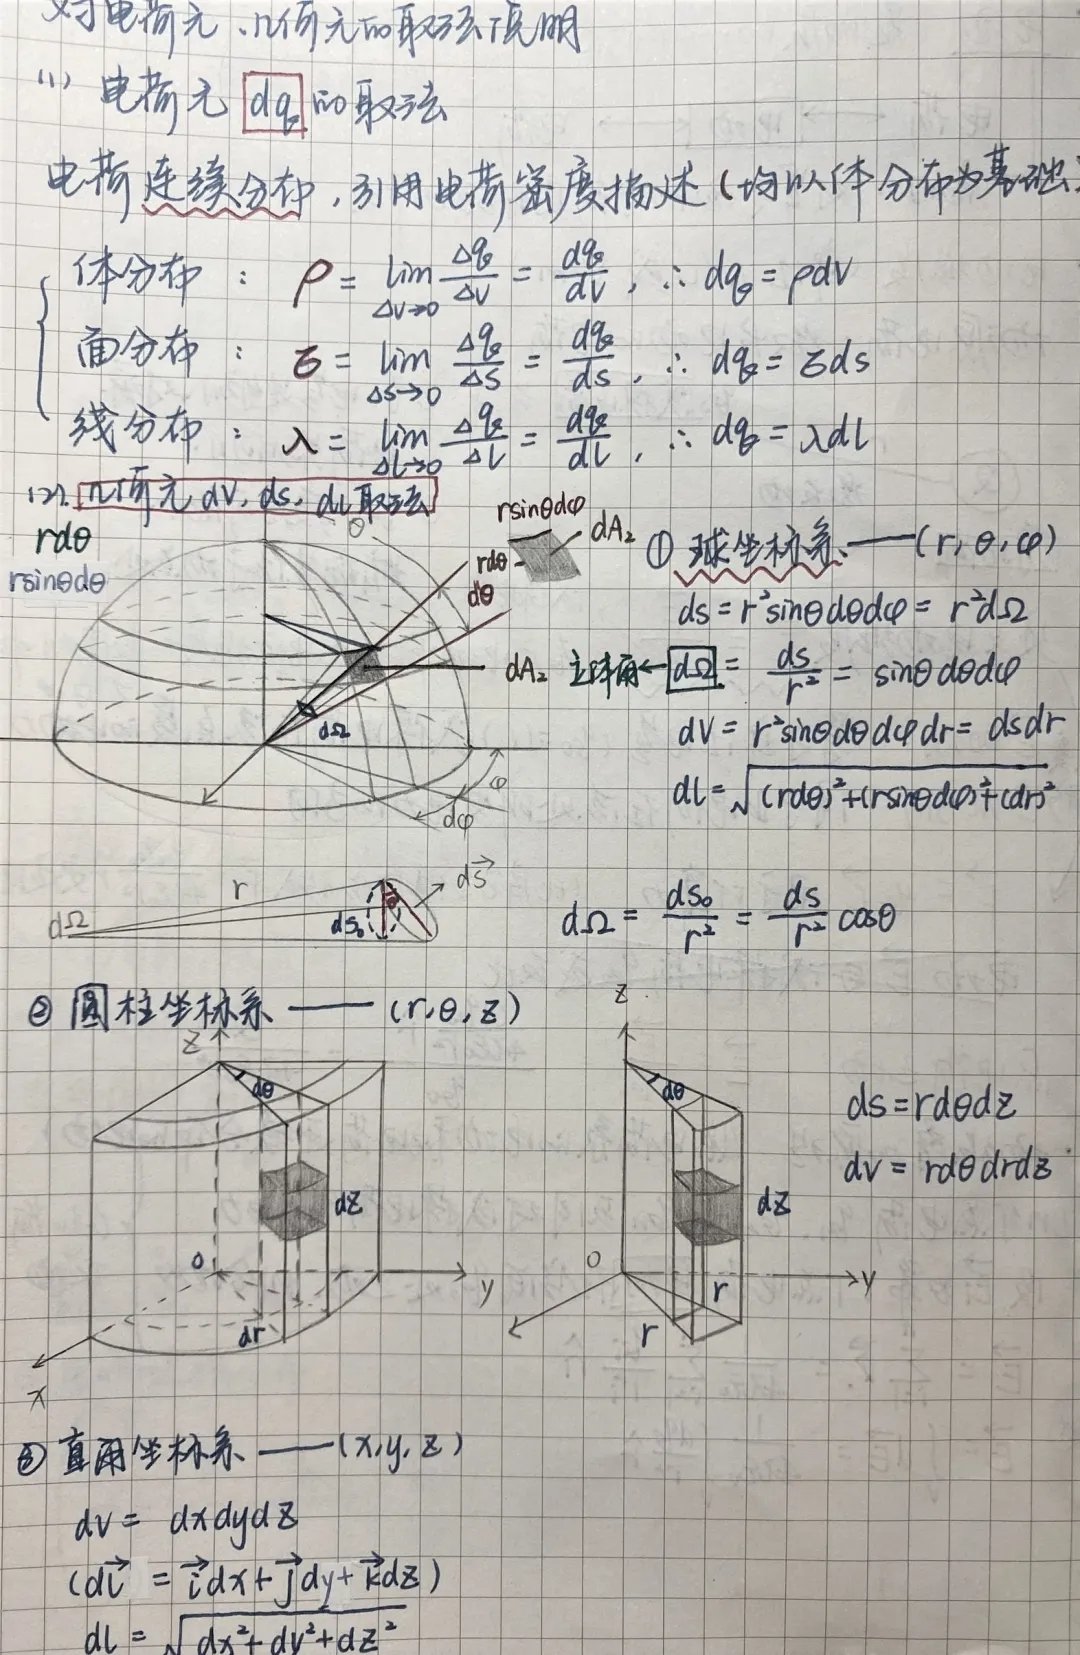 对电荷元、几何元的取法说明
(1) 电荷元 dq 的取法
电荷连续分布,引用电荷密度描述(均以体分布为基础
体分布: ρ = lim Δv→0 Δq/Δv = dq/dv, ∴ dq = ρdv
面分布: σ = lim Δs→0 Δq/Δs = dq/ds, ∴ dq = σds
线分布: λ = lim Δl→0 Δq/Δl = dq/dl, ∴ dq = λdl
(2). 几何元 dv, ds, dl 取法
rdθ
rsinθdθ
θ
rsinθdφ
dA₂
rdθ
dθ
dA₂
dΩ
φ
dφ
① 球坐标系——(r, θ, φ)
ds = r²sinθdθdφ = r²dΩ
立体角←dΩ = ds/r² = sinθdθdφ
dV = r²sinθdθdφdr = dsdr
dl = √((rdθ)²+(rsinθdφ)²+(dr)²)
dΩ
r
dS₀
θ
dS⃗
dΩ = ds₀/r² = ds/r² cosθ
② 圆柱坐标系——(r,θ,z)
z
dθ
dz
o
y
dr
x
z
dθ
dz
o
y
r
r
ds = rdθdz
dv = rdθdrdz
③ 直角坐标系——(x,y,z)
dv = dxdydz
(dl⃗ = i⃗dx+j⃗dy+k⃗dz)
dl = √(dx²+dy²+dz²)